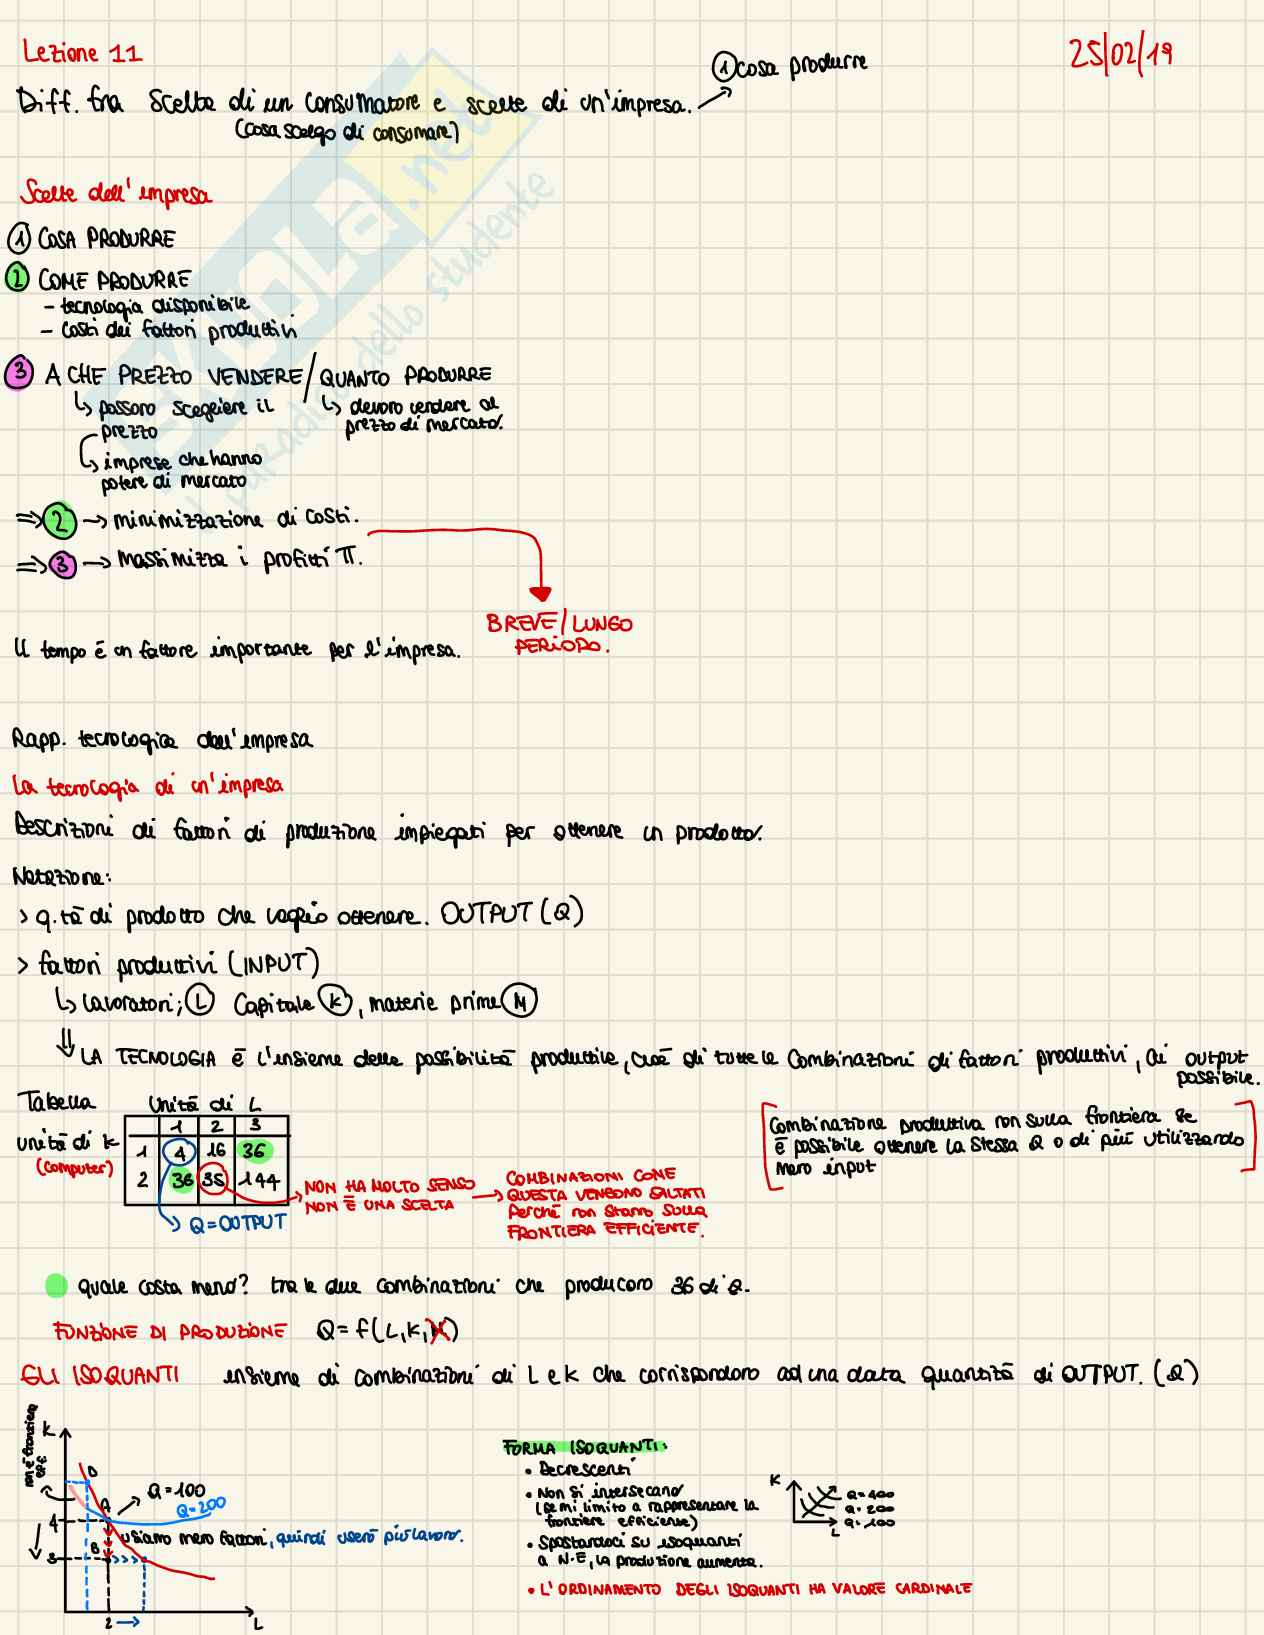 Lezione 11
25/02/19
Diff. fra Scelta di un consumatore e scelte di un'impresa. → ① cosa produrre
(cosa scelgo di consumare)
Scelte dell'impresa
① COSA PRODURRE
② COME PRODURRE
- tecnologia disponibile
- costi dei fattori produttivi
③ A CHE PREZZO VENDERE / QUANTO PRODURRE
↳ possono scegliere il prezzo
↳ devono vendere al prezzo di mercato.
↳ imprese che hanno potere di mercato
⇒ ② → minimizzazione di costi.
⇒ ③ → Massimizza i profitti π.
BREVE / LUNGO
PERIODO.
Il tempo è un fattore importante per l'impresa.
Rapp. tecnologica dell'impresa
La tecnologia di un'impresa
Descrizioni di fattori di produzione impiegati per ottenere un prodotto.
Notazione:
> q.tà di prodotto che voglio ottenere. OUTPUT (Q)
> fattori produttivi (INPUT)
↳ Lavoratori; L Capitale K, materie prime M
⇓ LA TECNOLOGIA è l'insieme delle possibilità produttile, cioè di tutte le combinazioni di fattori produttivi, di output
possibile.
Tabella Unità di L
unità di K
(computer)
1 2 3
1 4 16 36
2 36 35 144
→ Q = OUTPUT
NON HA MOLTO SENSO
NON È UNA SCELTA
→ COMBINAZIONI COME
QUESTA VENGONO SALTATI
Perché non stanno sulla
FRONTIERA EFFICIENTE.
[Combinazione produttiva non sulla frontiera se
è possibile ottenere la stessa Q o di più utilizzando
meno input]
quale costa meno? tra le due combinazioni che producono 36 di Q.
FUNZIONE DI PRODUZIONE Q = f(L, K, M)
GLI ISOQUANTI insieme di combinazioni di L e K che corrispondono ad una data quantità di OUTPUT. (Q)
non è frontiera eff.
K
D
Q = 100
A
Q = 200
4
usiamo meno fattori, quindi userò più lavoro.
B
3
2 →
L
FORMA ISOQUANTI:
• Decrescenti
• Non si intersecano
(se mi limito a rappresentare la
frontiere efficiente)
• Spostandoci su isoquanti
a N-E, la produzione aumenta.
• L'ORDINAMENTO DEGLI ISOQUANTI HA VALORE CARDINALE
K
Q = 400
Q = 200
Q = 100
L
SKUOLA.net
il paradiso dello studente